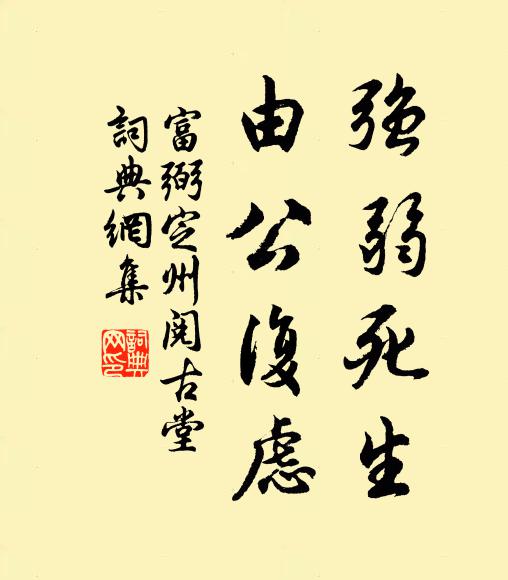 强弱死生
由公復慮
富弼定州閱古堂
詞典網集
詞典網印